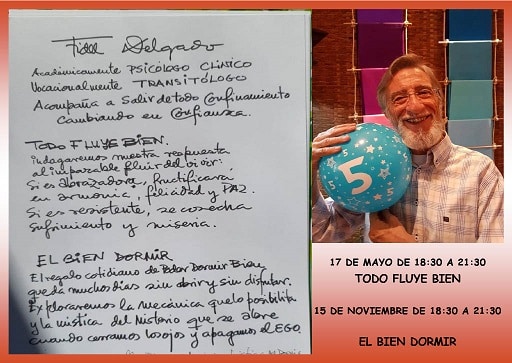 Fidel Delgado
Académicamente PSICÓLOGO CLÍNICO
Vocacionalmente TRANSITÓLOGO
Acompaña a Salir de todo Confinamiento
Cambiando en Confianza.
TODO FLUYE BIEN.
indagaremos nuestra respuesta
al imparable fluir del vivir.
Si es abrazadora, fructificará
en armonía, felicidad y PAZ.
Si es resistente, se cosecha
Sufrimiento y miseria.
EL BIEN DORMIR
El regalo cotidiano de Poder Dormir Bien,
queda muchos días sin abrir y sin disfrutar.
Exploraremos la mecánica que lo posibilita
y la mística del Misterio que se abre
cuando cerramos los ojos y apagamos el EGO.
5
5
5
17 DE MAYO DE 18:30 A 21:30
TODO FLUYE BIEN
15 DE NOVIEMBRE DE 18:30 A 21:30
EL BIEN DORMIR